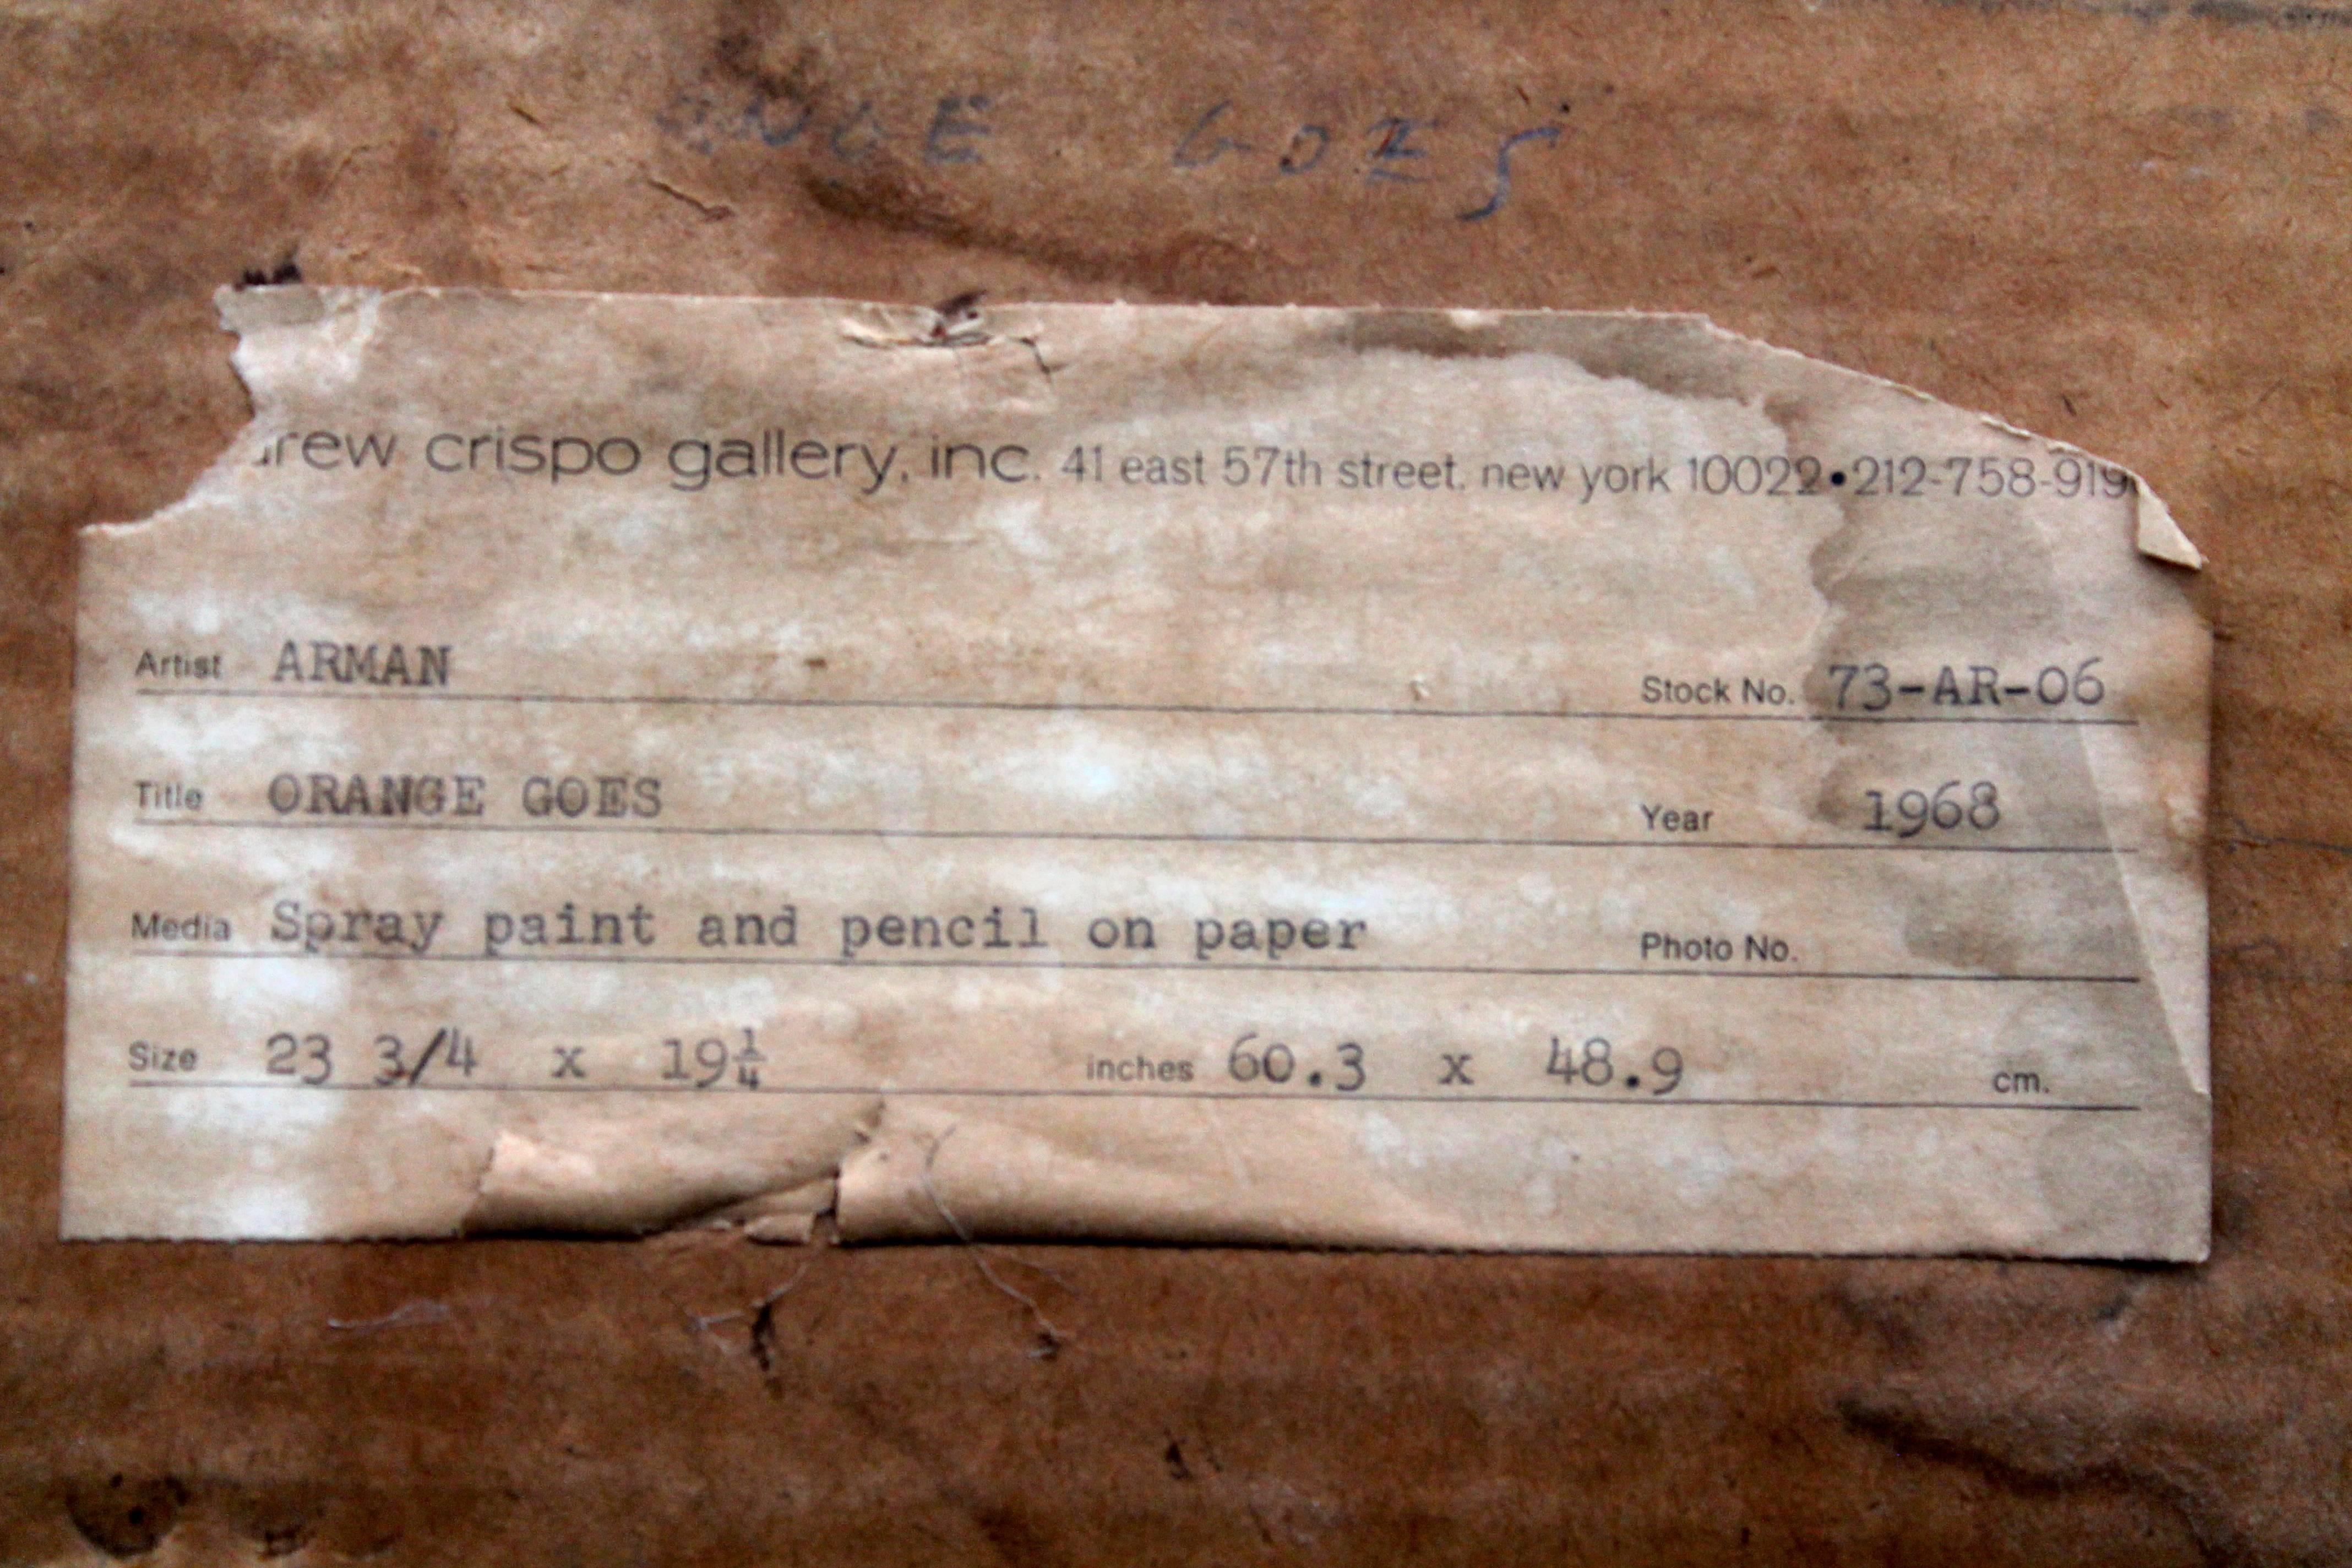 NGE GOES
rew crispo gallery, inc. 41 east 57th street, new york 10022•212-758-919
Artist ARMAN Stock No. 73-AR-06
Title ORANGE GOES Year 1968
Media Spray paint and pencil on paper Photo No.
Size 23 3/4 x 19¼ inches 60.3 x 48.9 cm.